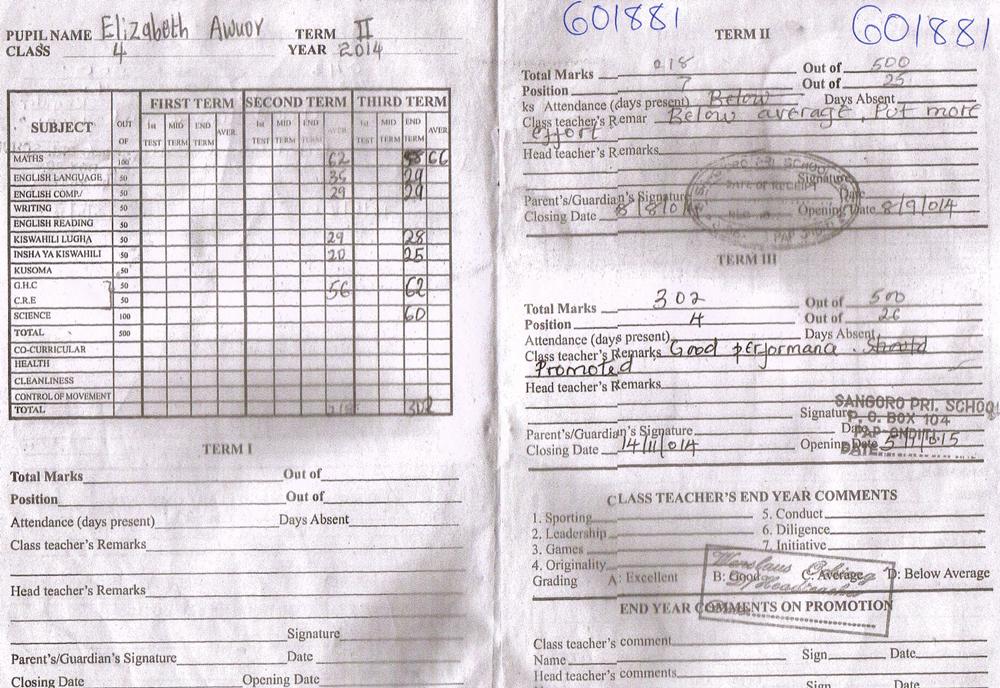 PUPIL NAME Elizabeth Awuor TERM II
CLASS 4 YEAR 2014
SUBJECT OUT OF FIRST TERM SECOND TERM THIRD TERM
1st TEST MID TERM END TERM AVER. 1st TEST MID TERM END TERM AVER 1st TEST MID TERM END TERM AVER
MATHS 100 62 58 66
ENGLISH LANGUAGE 50 35 29
ENGLISH COMP/ 50 29 29
WRITING 50
ENGLISH READING 50
KISWAHILI LUGHA 50 29 28
INSHA YA KISWAHILI 50 20 25
KUSOMA 50
G.H.C 50 56 62
C.R.E 50
SCIENCE 100 60
TOTAL 500
CO-CURRICULAR
HEALTH
CLEANLINESS
CONTROL OF MOVEMENT
TOTAL 218 302
TERM I
Total Marks Out of
Position Out of
Attendance (days present) Days Absent
Class teacher's Remarks
Head teacher's Remarks
Signature
Parent's/Guardian's Signature Date
Closing Date Opening Date
601881 601881
TERM II
Total Marks 218 Out of 500
Position 7 Out of 25
ks Attendance (days present) Below Days Absent
Class teacher's Remar Below average, Put more
effort
Head teacher's Remarks
Signature
Parent's/Guardian's Signature Date
Closing Date 8/8/014 Opening Date 8/9/014
TERM III
Total Marks 302 Out of 500
Position 4 Out of 26
Attendance (days present) Days Absent
Class teacher's Remarks Good performance. Should
Promoted
Head teacher's Remarks
SANGORO PRI. SCHOOL
Signature P. O. BOX 104
Date PAP-ONDITI
Parent's/Guardian's Signature
Closing Date 14/11/014 Opening Date 5/1/015
DATE
CLASS TEACHER'S END YEAR COMMENTS
1. Sporting 5. Conduct
2. Leadership 6. Diligence
3. Games 7. Initiative
4. Originality
Grading A: Excellent B: Good C: Average D: Below Average
Headteacher
END YEAR COMMENTS ON PROMOTION
Class teacher's comment
Name Sign Date
Head teacher's comments
Sign Date